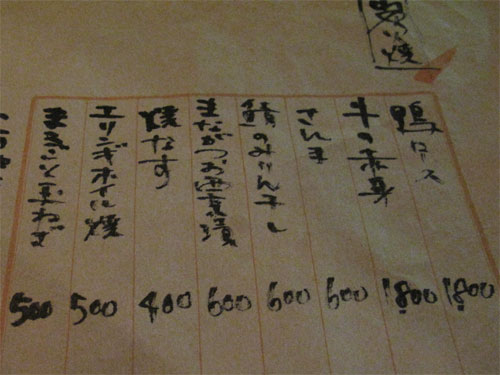 炙り焼
鴨ロース 1800
牛の赤身 1800
さんま 600
鯖のみりん干し 600
まながつお西京漬 600
焼なす 400
エリンギホイル焼 500
まるごと玉ねぎ 500